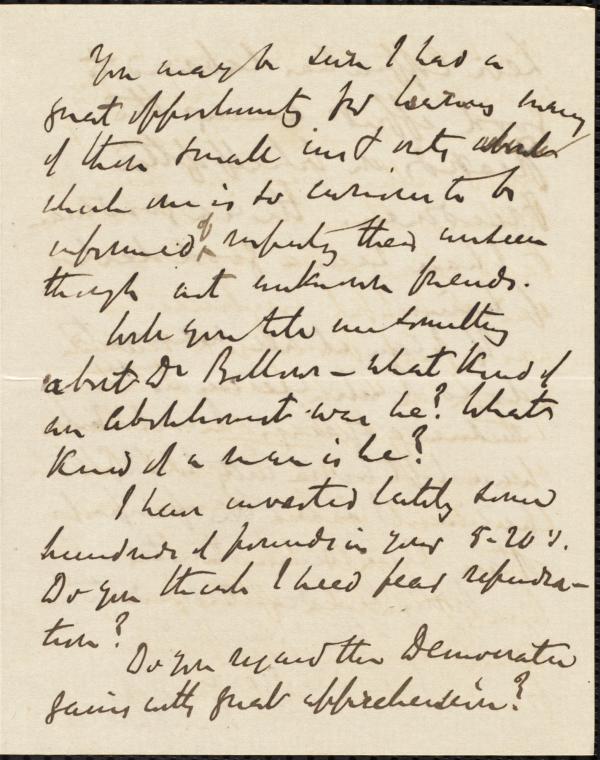 You may be sure I had a
great opportunity for learning many
of those small ins & outs about
which one is so curious to be
informed of respecting these unseen
though not unknown friends.
Will you tell me something
about Dr Bellows — What kind of
an abolitionist was he? What
kind of a man is he?
I have invested lately some
hundreds of pounds in your 5-20's.
Do you think I need fear repudia-
tion?
Do you regard the Democratic
gains with great apprehension?